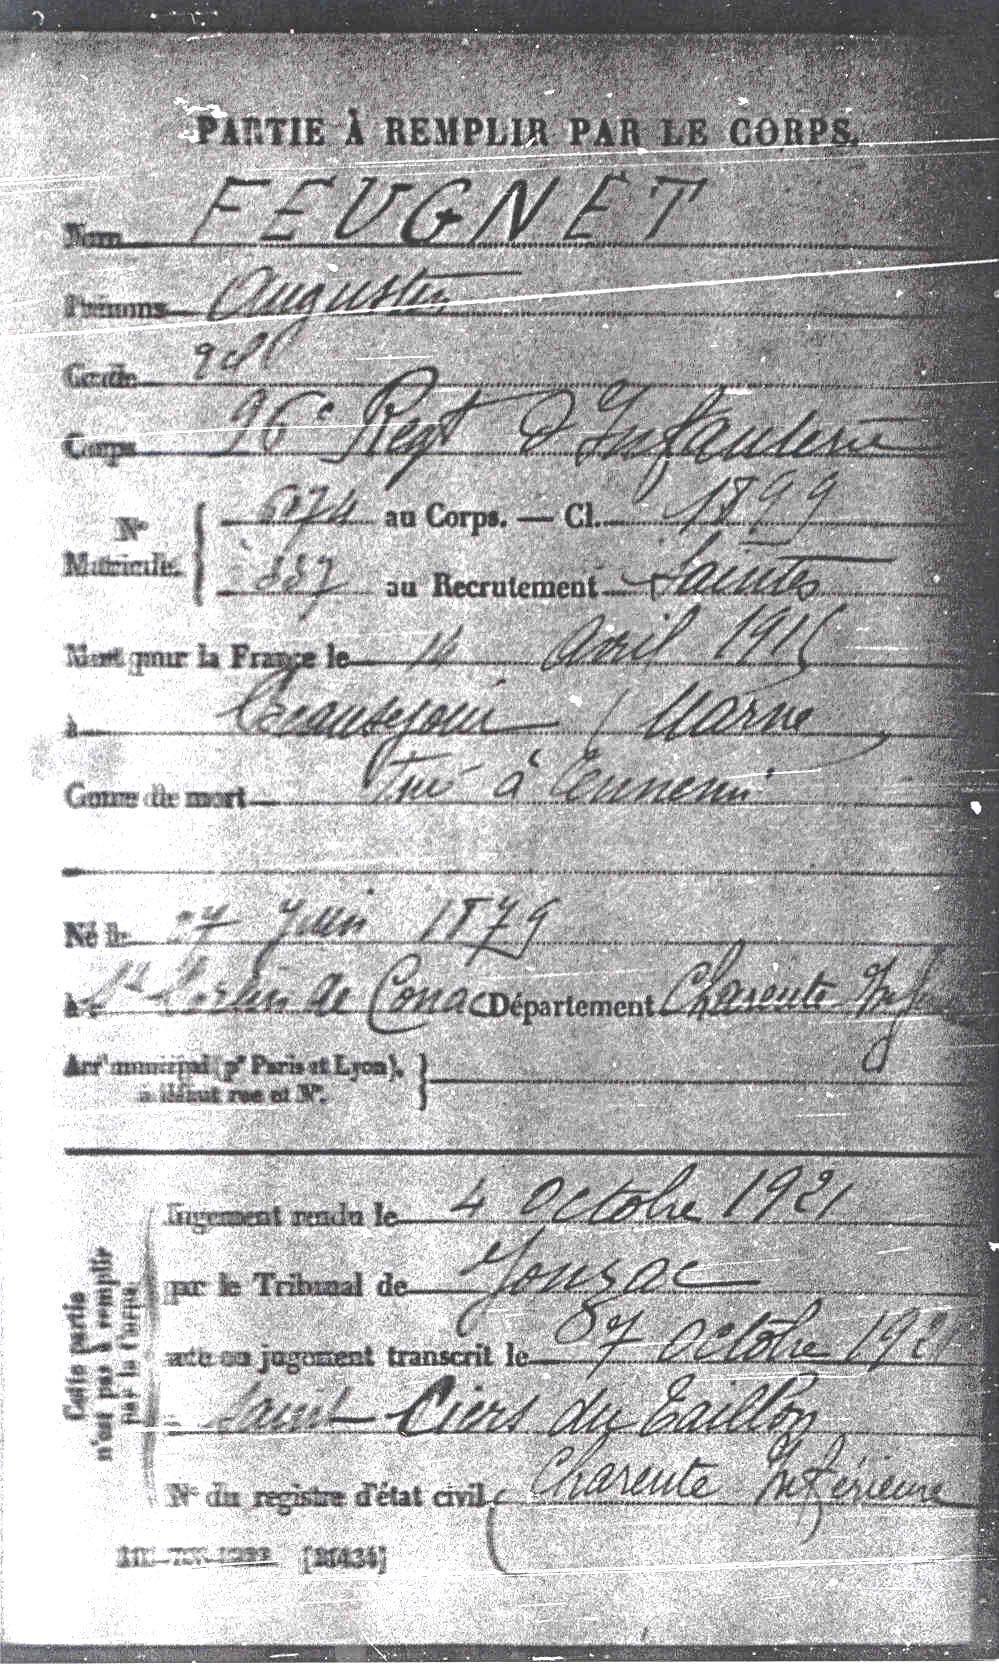 PARTIE À REMPLIR PAR LE CORPS.
Nom FEUGNET
Prénoms Augustin
Grade 2e cl
Corps 96e Regt d'Infanterie
N° Matricule. 6074 au Corps. — Cl. 1899
887 au Recrutement Saintes
Mort pour la France le 14 avril 1915
à Beausejour (Marne)
Genre de mort Tué à l'ennemi
Né le 27 Juin 1879
à St Sorlin de Conac Département Charente Infre
Arrt municipal (pr Paris et Lyon), à défaut rue et N°.
Cette partie n'est pas à remplir par le Corps.
Jugement rendu le 4 octobre 1921
par le Tribunal de Jonzac
acte ou jugement transcrit le 27 octobre 1921
à Saint-Ciers du Taillon
N° du registre d'état civil (Charente Inférieure)
[26434]